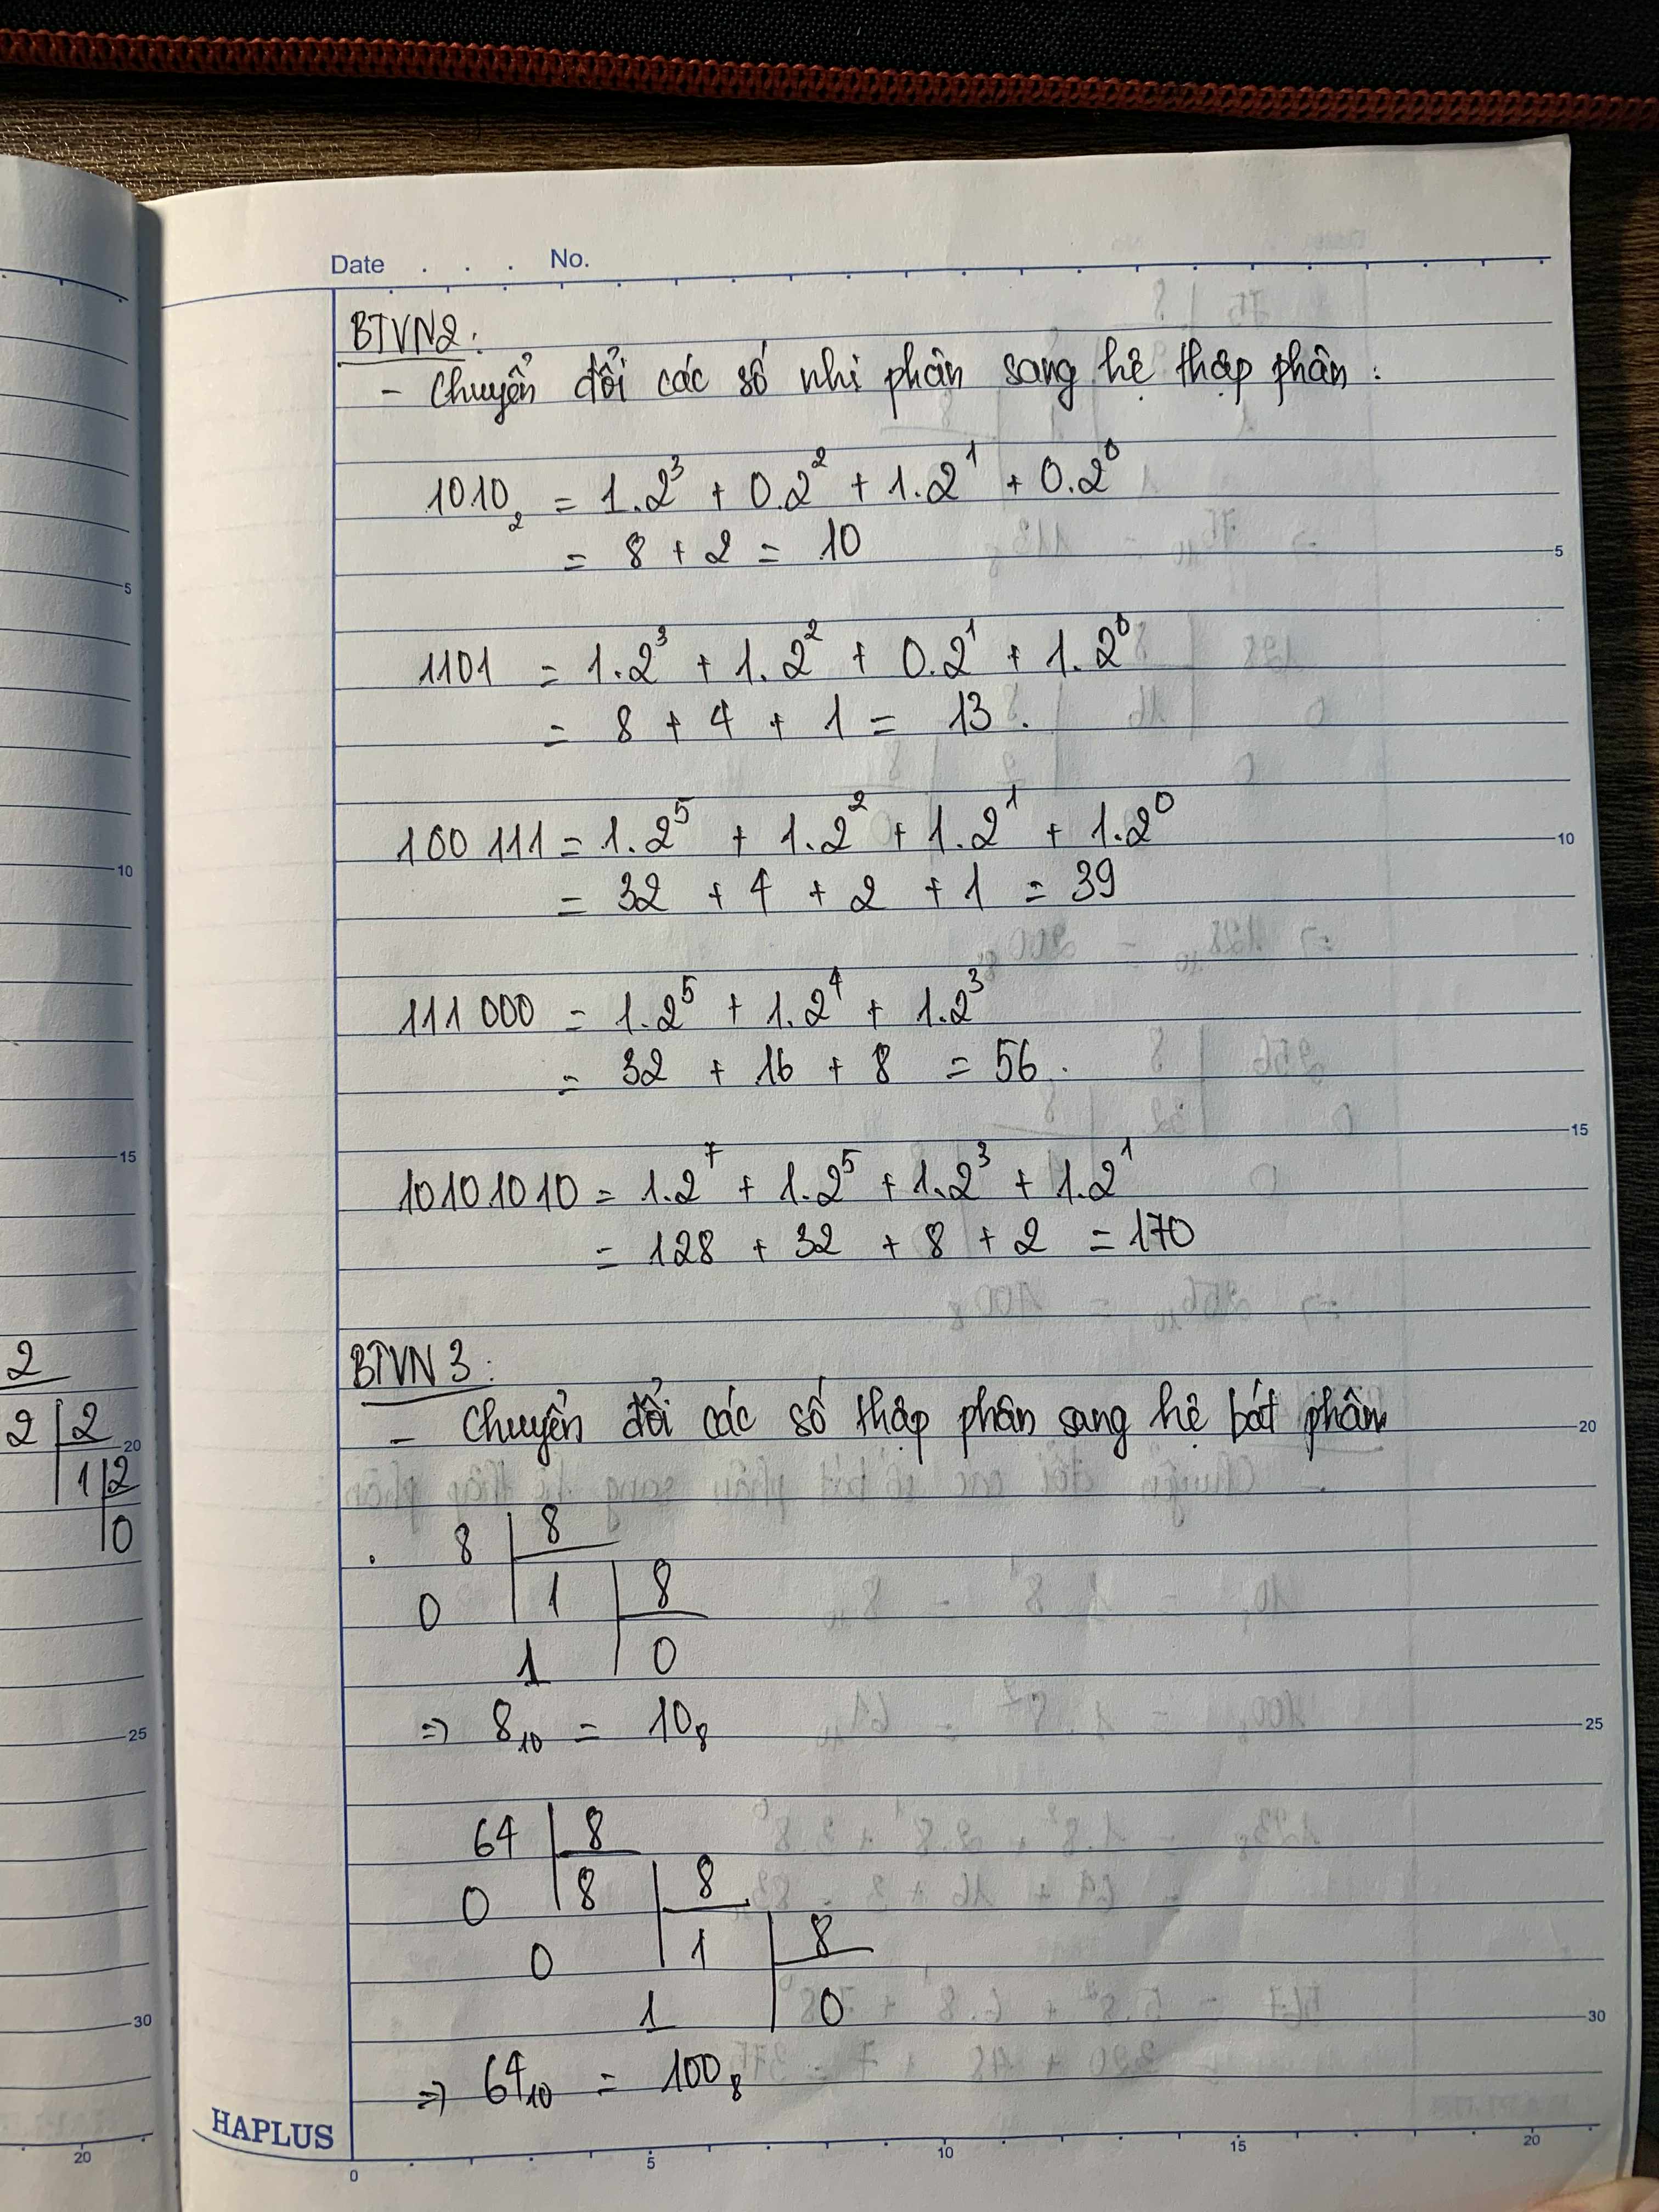 Date . . . No.
BTVN2:
- Chuyển đổi các số nhị phân sang hệ thập phân :
1010₂ = 1.2³ + 0.2² + 1.2¹ + 0.2⁰
= 8 + 2 = 10
1101 = 1.2³ + 1.2² + 0.2¹ + 1.2⁰
= 8 + 4 + 1 = 13.
100 111 = 1.2⁵ + 1.2² + 1.2¹ + 1.2⁰
= 32 + 4 + 2 + 1 = 39
111 000 = 1.2⁵ + 1.2⁴ + 1.2³
= 32 + 16 + 8 = 56.
10101010 = 1.2⁷ + 1.2⁵ + 1.2³ + 1.2¹
= 128 + 32 + 8 + 2 = 170
BTVN 3:
- Chuyển đổi các số thập phân sang hệ bát phân
. 8 | 8
0 | 1 | 8
1 | 0
⇒ 8₁₀ = 10₈
64 | 8
0 | 8 | 8
0 | 1 | 8
1 | 0
⇒ 64₁₀ = 100₈
HAPLUS
0 5 10 15 20
5
10
15
20
25
30
2
2 | 2
1 | 2
0
5
10
15
20
25
30
20